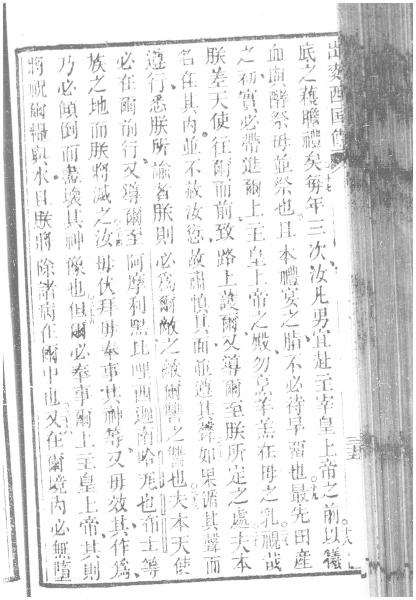 出麥西國傳
底之穫瞻禮矣每年三次、汝凡男宜赴主宰皇上帝之前、以犧
血與酵祭毋並祭也、且本禮宴之脂不必待早留也、最先田產
之初實必帶進爾上主皇上帝之殿、勿烹羊羔在母之乳、視哉
朕差天使在爾面前、致路上護爾又導爾至朕所定之處、夫本
名在其內並不赦汝愆、故肅慎其面並遵其聲、如果循其聲而
遵行悉朕所諭者、朕則必為爾敵之敵爾讐之讐也、夫本天使
必在爾前行、又導爾至阿摩利 比哩西迦南哈 也布士等
族之地而朕將滅之、汝毋伏拜毋奉事其神等、又毋效其作為、
乃必傾倒而盡壞其神像也、但爾必奉事爾上主皇上帝、其則
將祝爾糧與水、且朕將除諸病在爾中也、又在爾境內必無墮